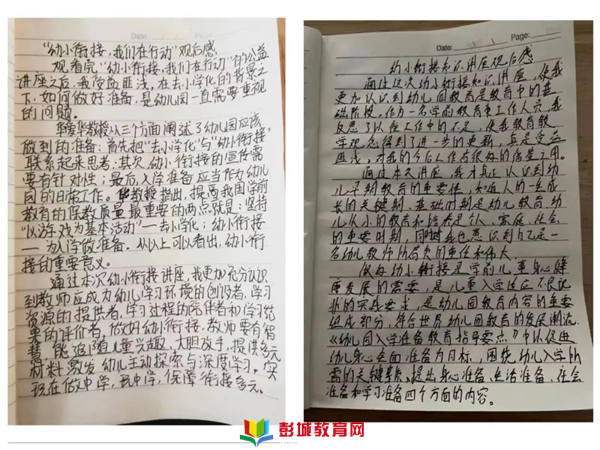 Date:
"幼小衔接,我们在行动"观后感
观看完"幼小衔接,我们在行动"的公益
讲座之后,我受益匪浅,在去小学化的背景之
下,如何做好准备,是幼儿园一直需要重视
的问题。
华爱华教授从三个方面阐述了幼儿园应该
做到的准备:首先把"去小学化"与"幼小衔接"
联系起来思考;其次,幼小衔接的宣传需
要有针对性;最后,入学准备应当作为幼儿
园的日常工作。华教授指出,提高我国学前
教育的保教质量最重要的两点就是:坚持
"以游戏为基本活动"——去小学化;幼小衔接
——为入学做准备。从以上可以看出,幼小衔
接的重要意义。
通过本次幼小衔接讲座,我更加充分认识
到教师应成为幼儿学习环境的创设者,学习
资源的提供者,学习过程的陪伴者和学习效
果的评价者。做好幼小衔接,教师要有智
慧,能追随儿童兴趣,大胆放手,提供多元
材料,激发幼儿主动探索与深度学习。实
现在做中学,玩中学,保障衔接多元。
Date: Page:
幼小衔接知识讲座观后感
通过这次幼小衔接知识讲座,使我
更加认识到幼儿园教育是教育中的基
础阶段,作为一名学前教育工作人员,我
反思了以往工作中的不足,使我教育教
学观念得到了进一步的更新,真是受益
匪浅,对我的今后工作有很好的促进作用。
通过本次讲座,我才真正认识到幼
儿学前教育的重要性,知道人的一生成
长的关键期,基础时期是幼儿教育,幼
儿从小的教育和培养是个人、家庭、社会
的重要时期,同时我也意识到了自己是一
名幼儿教师所负的责任和伟大。
做好幼小衔接是学前儿童身心健
康发展的需要,是儿童入学适应不良现
状的实践要求,是幼儿园教育内容的重要
组成部分,符合世界幼儿园教育的发展潮流。
《幼儿园入学准备教育指导要点》中以促进
幼儿身心全面准备为目标,围绕幼儿入学所
需的关键素质,提出身心准备、生活准备、社会
准备和学习准备四个方面的内容。
彭城教育网